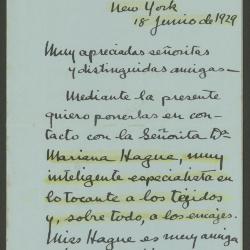 New York
18 Junio de 1929
Muy apreciadas señoritas
y distinguidas amigas—
Mediante la presente
quiero ponerlas en con-
tacto con la Señorita Da
Mariana Hague, muy
inteligente especialista en
lo tocante a los tejidos
y, sobre todo, a los encajes.
Miss Hague es muy amiga